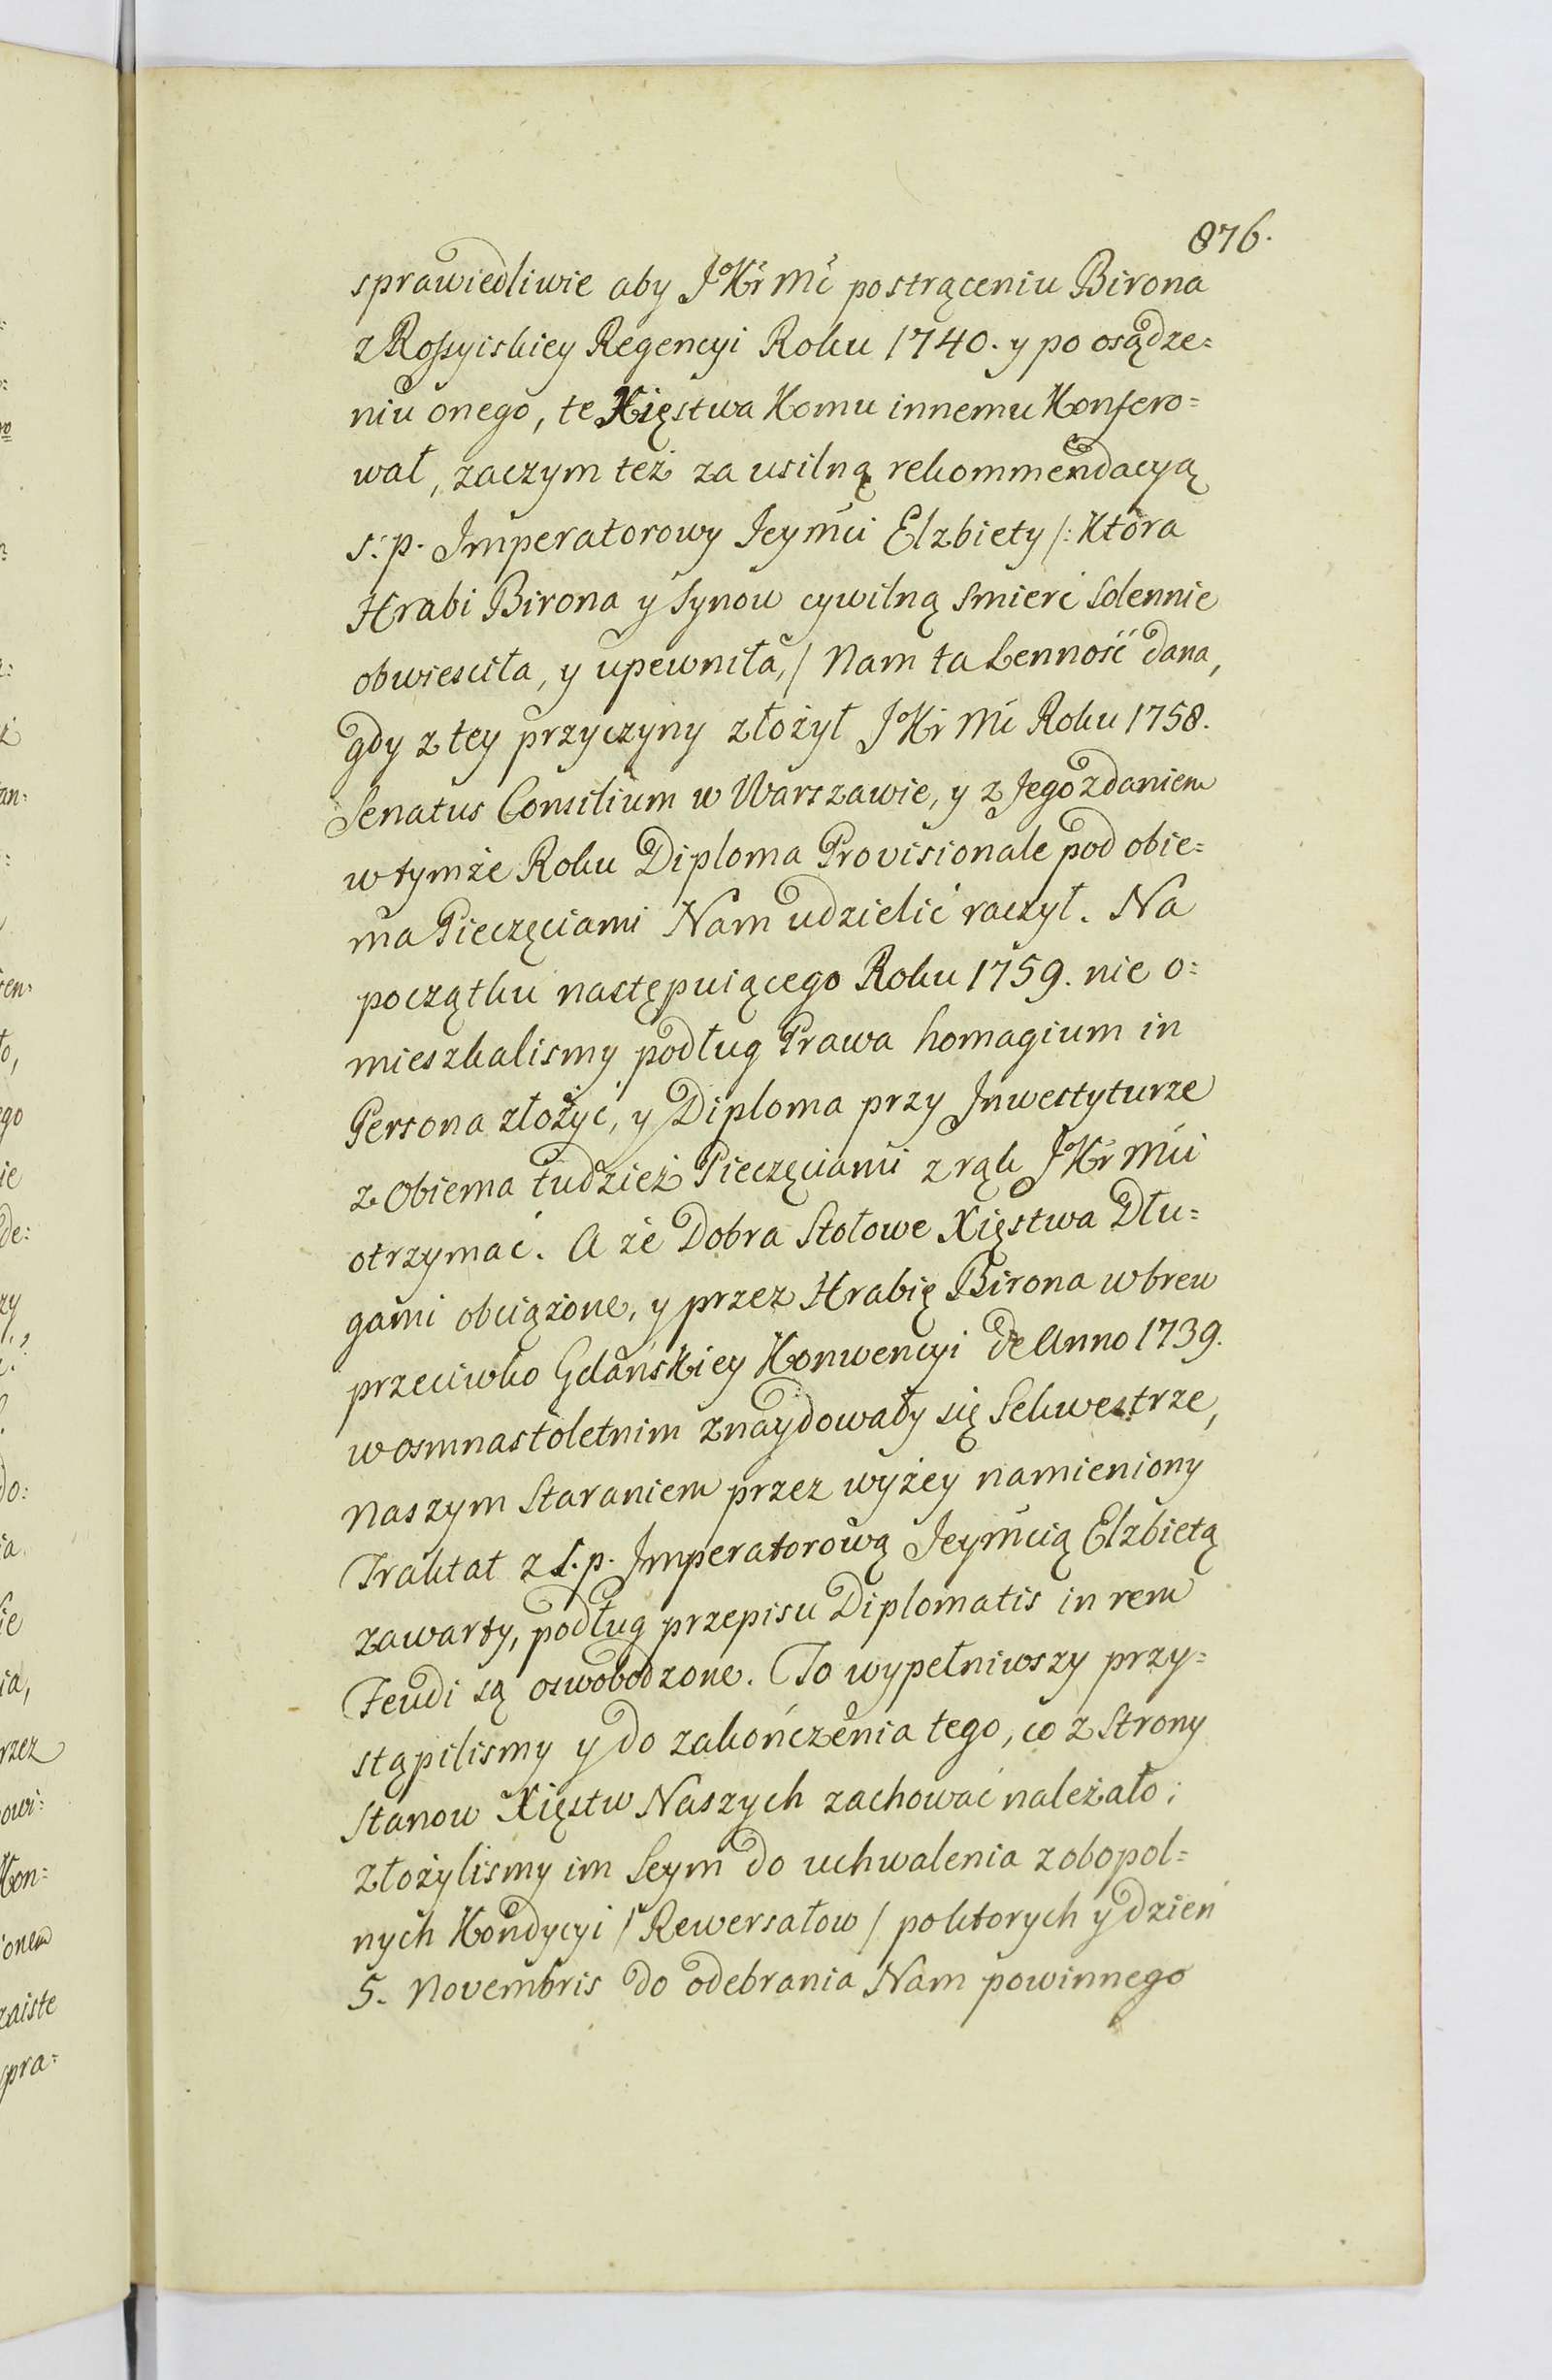 876.
sprawiedliwie aby JKr Mć po strąceniu Birona
z Rossyiskiey Regencyi Roku 1740. y po osądze=
niu onego, te Xięstwa Komu innemu Konfero=
wał, zaczym też za usilną rekommendacyą
s: p. Imperatorowy Jeymći Elzbiety /: Która
Hrabi Birona y Synow cywilną Smierć Solennie
obwiesciła, y upewniła, / Nam ta Lenność dana,
gdy z tey przyczyny złożył JKr Mć Roku 1758.
Senatus Consilium w Warszawie, y z Jego zdaniem
w tymże Roku Diploma Provisionale pod obie=
ma Pieczęciami Nam udzielić raczył. Na
początku następuiącego Roku 1759. nie o=
mieszkalismy podług Prawa homagium in
Persona złożyć, y Diploma przy Inwestyturze
z Obiema tudzież Pieczęciami z rąk JKr Mći
otrzymać. A że Dobra Stołowe Xięstwa Dłu=
gami obciążone, y przez Hrabię Birona wbrew
przeciwko Gdańskiey Konwencyi de Anno 1739.
w osmnastoletnim znaydowały się Sekwestrze,
Naszym Staraniem przez wyżey namieniony
Traktat z S. p. Imperatorową Jeymcią Elzbietą
zawarty, podług przepisu Diplomatis in rem
Feudi są oswobodzone. To wypełniwszy przy=
stąpilismy y do zakończenia tego, co z Strony
Stanow Xięstw Naszych zachować należało;
Złożylismy im Seym do uchwalenia zobopol=
nych Kondycyi / Rewersałow / po ktorych y dzień
5. Novembris do odebrania Nam powinnego